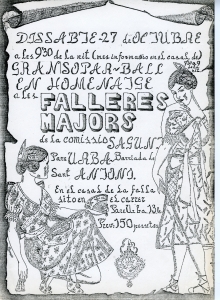 DISSABTE-27 de OCTUBRE
a les 9'30 de la nit (mes informasio en el casal de)
GRANSOPAR-BALL
EN HOMENATGE
a les
FALLERES
MAJORS
de la comissio SAGUNT
Pare URBA Barriada de
Sant ANTONI.
En el casal de la falla
sito en el carrer
Pare Urba, 13 b.
Preu 150 pesetes